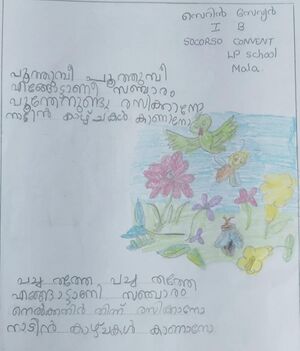 സെറിൻ സേവ്യർ
I B
SOCORSO CONVENT
LP school
Mala
പൂത്തുമ്പീ പൂത്തുമ്പീ
എങ്ങോട്ടാണീ സഞ്ചാരം
പൂന്തേനുണ്ടു രസിക്കാനോ
നാട്ടിൻ കാഴ്ചകൾ കാണാനോ
പച്ച തത്തേ പച്ച തത്തേ
എങ്ങോട്ടാണി സഞ്ചാരം
നെൽക്കതിർ തിന്ന് രസിക്കാനോ
നാടിൻ കാഴ്ചകൾ കാണാനോ